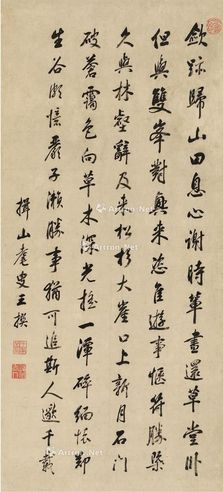 歛跡歸山田息心謝時輩晝還草堂卧
但與雙峯對興來恣佳遊事愜符勝槩
久與林壑辭及來松杉大崖口上新月石門
破蒼靄色向草木深光搖一潭碎緬懷鄭
生谷頗憶嚴子瀨勝事猶可追斯人邈千載
揖山耄叟王撰